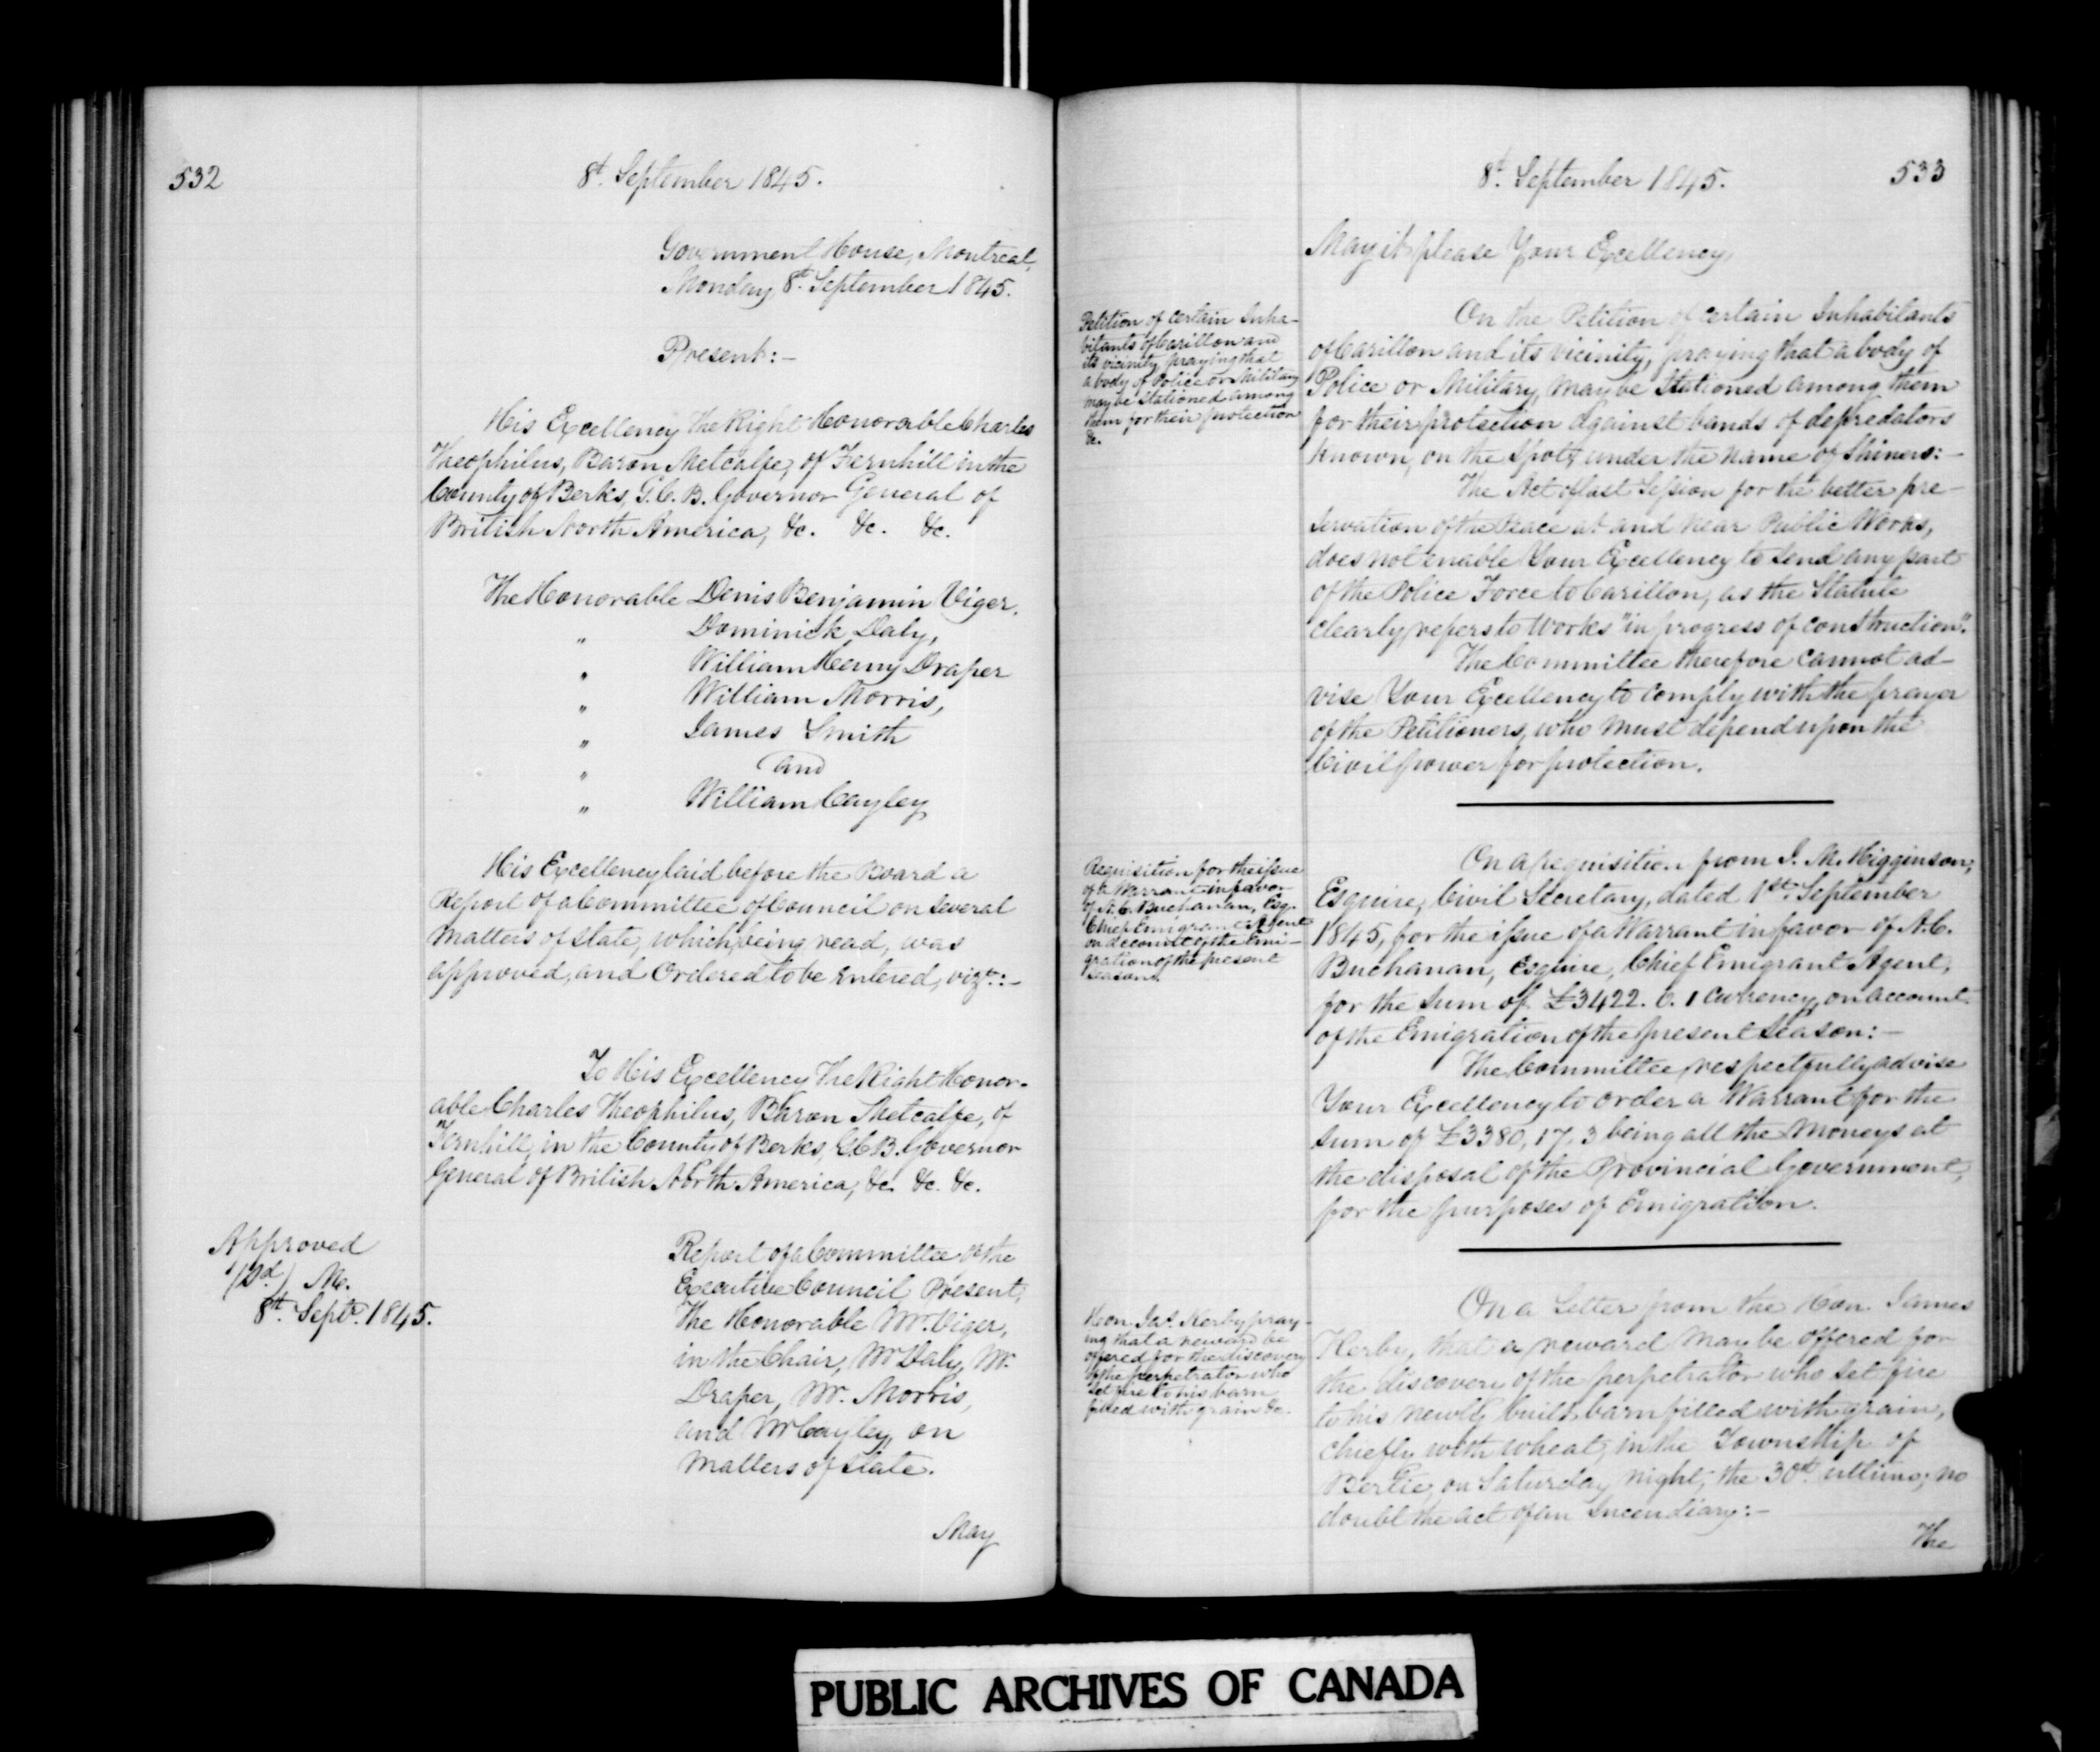 532
8t. September 1845.
Government House, Montreal,
Monday 8th. September 1845.
Present:-
His Excellency The Right Honorable Charles
Theophilus, Baron Metcalfe, of Fernhill in the
County of Berks, G.C.B. Governor General of
British North America, &c. &c. &c.
The Honorable Denis Benjamin Viger.
" Dominick Daly,
" William Henry Draper
" William Morris,
" James Smith
" and
" William Cayley
His Excellency laid before the Board a
Report of a Committee of Council on several
matters of state, which, being read, was
approved, and Ordered to be entered, vizt:-
To His Excellency The Right Honor-
able Charles Theophilus, Baron Metcalfe, of
Fernhill, in the County of Berks, G.C.B. Governor
General of British North America, &c. &c. &c.
Approved
(Sd.) M.
8th. Septr. 1845.
Report of a Committee of the
Executive Council Present,
The Honorable Mr. Viger,
in the Chair, Mr Daly, Mr.
Draper, Mr. Morris,
and Mr Cayley, on
Matters of State.
May
8t. September 1845.
533
May it please Your Excellency,
Petition of certain Inha-
bitants of Carillon and
its vicinity praying that
a body of Police or Military
may be stationed among
them for their protection
&c.
On the Petition of certain Inhabitants
of Carillon and its vicinity, praying that a body of
Police or Military may be Stationed among them
for their protection against bands of depredators
known, on the spot, under the name of Shiners:-
The Act of last Session for the better pre-
servation of the Peace at and near Public Works,
does not enable Your Excellency to send any part
of the Police Force to Carillon, as the Statute
clearly refers to Works "in progress of construction".
The Committee therefore cannot ad-
vise Your Excellency to comply with the prayer
of the Petitioners, who must depend upon the
Civil power for protection.
Requisition for the issue
of a Warrant in favor
of A.C. Buchanan, Esq.
Chief Emigrant Agent
on account of the Emi-
gration of the present
season.
On a requisition from J. M. Higginson,
Esquire, Civil Secretary, dated 1st. September
1845, for the issue of a Warrant in favor of A.C.
Buchanan, Esquire, Chief Emigrant Agent,
for the sum of £3422. 6. 1 Currency, on account
of the Emigration of the present season:-
The Committee respectfully advise
Your Excellency to order a Warrant for the
sum of £3380, 17, 3 being all the Moneys at
the disposal of the Provincial Government,
for the purposes of Emigration.
Hon. Jas. Kerby pray-
ing that a reward be
offered for the discovery
of the perpetrator who
set fire to his barn
filled with grain &c.
On a Letter from the Hon. James
Kerby, that a reward may be offered for
the discovery of the perpetrator who set fire
to his newly built barn filled with grain,
chiefly with wheat, in the Township of
Bertie, on Saturday night, the 30th. ultimo; no
doubt the act of an Incendiary:-
The
PUBLIC ARCHIVES OF CANADA